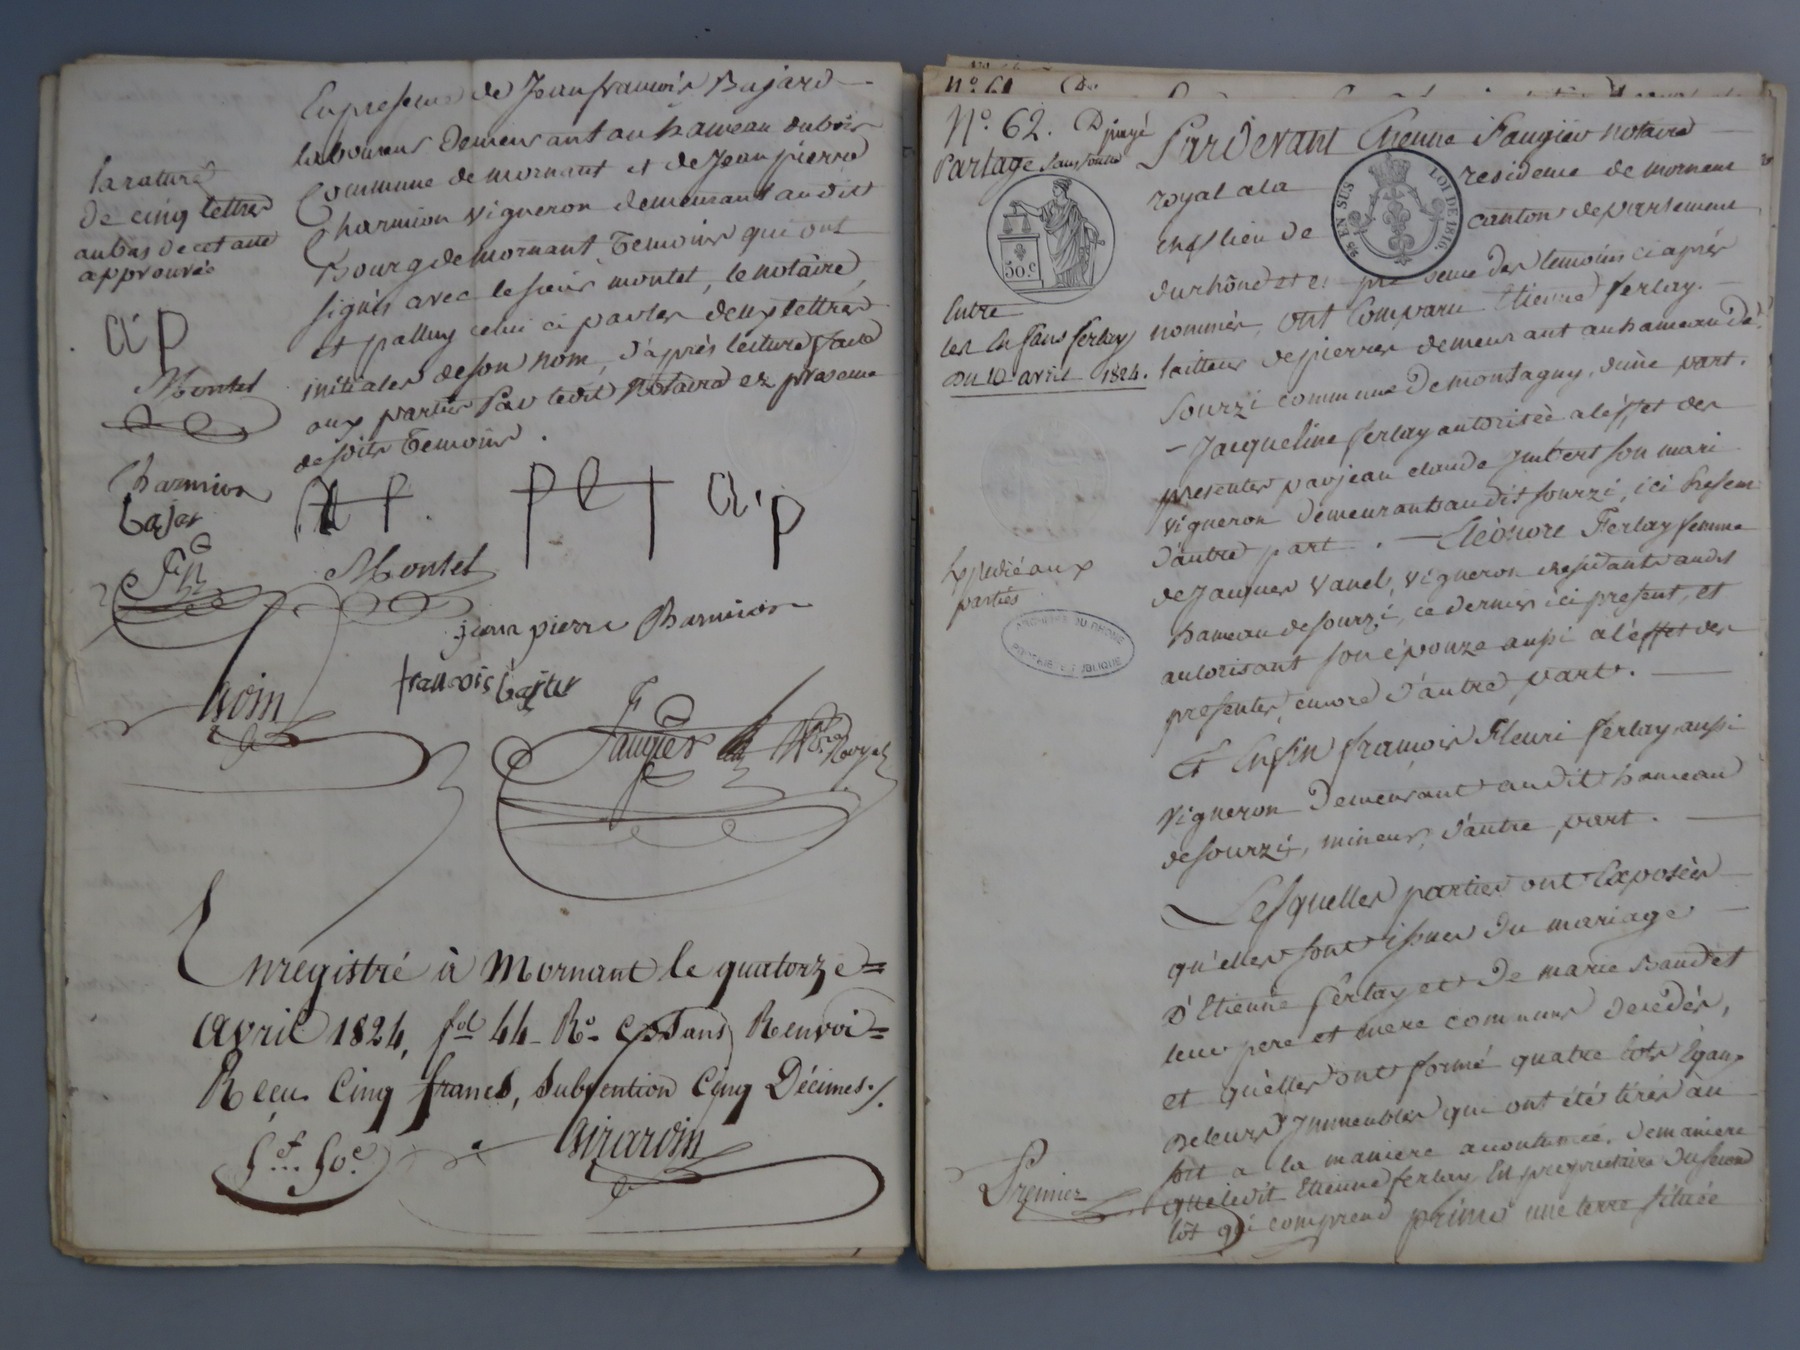 En presence de Jean francois Bajard
laboureur demeurant au hameau du bois
Commune de mornant et de Jean pierre
Charmion vigneron demeurant audit
Bourg de mornant, Temoins qui ont
signés avec le sieur montet, le notaire,
et palluy celui ci par les deux lettres
initiales de son nom, d'après lecture faite
aux parties par ledit Notaire ez presence
desdits Temoins.
la rature
de cinq lettres
au bas de cet acte
approuvée
ap
Montet
Charmion
bajar
P P ap
Montet
jean pierre Charmion
francois bajar
Faugier Nre Royal
Enregistré à Mornant le quatorze =
avril 1824, fol 44 Ro Sans Renvoi =
Reçu Cinq francs, Subvention Cinq Décimes ./.
Girardin
No 61
No 62. payé
Partage sans soulte
50 c
Entre
les Enfans ferlay
Du 10 avril 1824.
Expedié aux
parties
ARCHIVES DU RHONE
PROPRIETE PUBLIQUE
Premier
25 EN SUS LOI DE 1816.
Pardevant Etienne Faugier notaire
royal a la residence de mornant
chef lieu de canton departement
du rhône et en presence des temoins ci après
nommés, ont Comparu Etienne ferlay.
tailleur de pierres demeurant au hameau de
Sourzi commune de montagny, d'une part.
- Jacqueline ferlay autorisée a l'effet des
presentes par jean claude Imbert son mari
vigneron demeurants audit sourzi, ici present
d'autre part. - Eléonore Ferlay femme
de Jacques vanel, vigneron residants audit
hameau de sourzi, ce dernier ici present, et
autorisant son épouze aussi a l'effet des
presentes, encore d'autre part.
Et Enfin françois Fleuri ferlay aussi
vigneron demeurant audit hameau
de sourzi, mineur, d'autre part.
Lesquelles parties ont Exposées
qu'elles sont issues du mariage
d'Etienne ferlay et de marie Baudet
leur pere et mere communs decedés,
et qu'elles ont formé quatre lots Egaux
de leurs Immeubles qui ont été tirés au
sort a la maniere accoutumée. de maniere
que ledit Etienne ferlay Est proprietaire du second
lot qui comprend primo une terre située